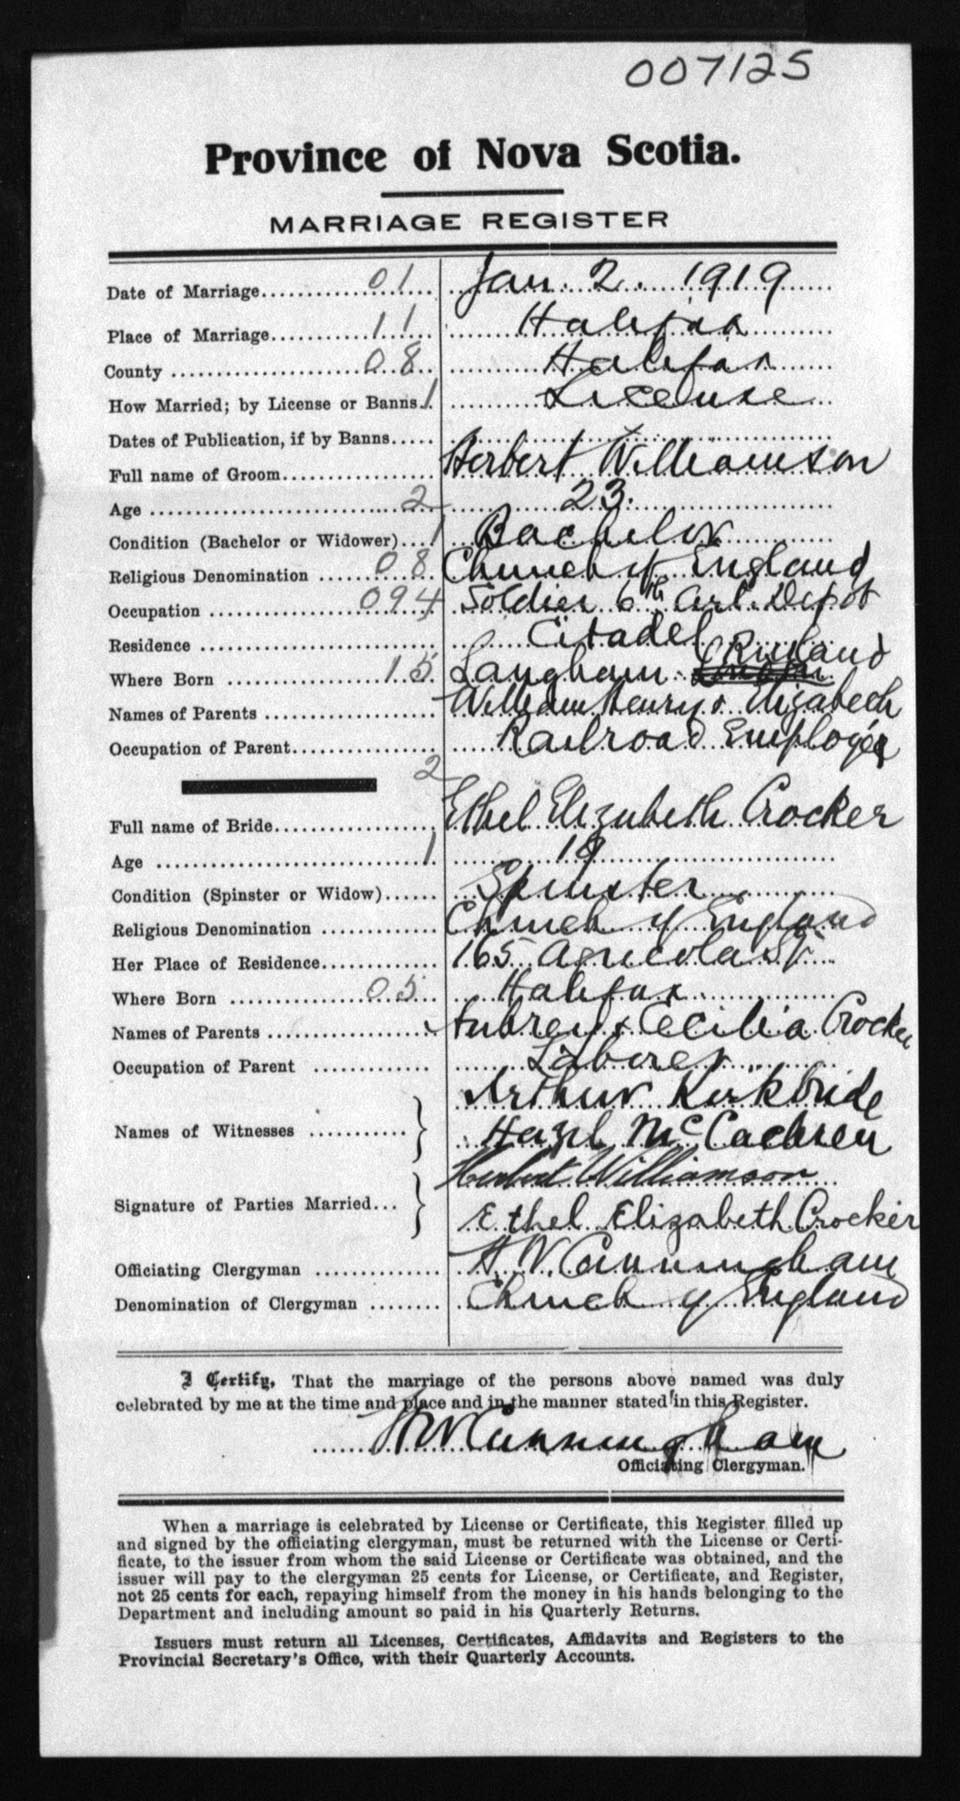 007125
Province of Nova Scotia.
MARRIAGE REGISTER
Date of Marriage 01 Jan. 2. 1919
Place of Marriage 11 Halifax
County 08 Halifax
How Married; by License or Banns 1 License
Dates of Publication, if by Banns
Full name of Groom Herbert Williamson
Age 2 23.
Condition (Bachelor or Widower) 1 Bachelor
Religious Denomination 08 Church of England
Occupation 094 Soldier 6th Art. Depot
Residence Citadel
Where Born 15 Langham Rutland
Names of Parents William Henry & Elizabeth
Occupation of Parent Railroad Employée
2
Full name of Bride Ethel Elizabeth Crocker
Age 1
Condition (Spinster or Widow) Spinster
Religious Denomination Church of England
Her Place of Residence 165 Agricola St.
Where Born 05 Halifax
Names of Parents Aubrey & Cecilia Crocker
Occupation of Parent Laborer
Names of Witnesses } Arthur Kirkbride
Hazel McCachren
Signature of Parties Married } Herbert Williamson
Ethel Elizabeth Crocker
Officiating Clergyman H W Cunningham
Denomination of Clergyman Church of England
I Certify, That the marriage of the persons above named was duly
celebrated by me at the time and place and in the manner stated in this Register.
H W Cunningham
Officiating Clergyman.
When a marriage is celebrated by License or Certificate, this Register filled up
and signed by the officiating clergyman, must be returned with the License or Certi-
ficate, to the issuer from whom the said License or Certificate was obtained, and the
issuer will pay to the clergyman 25 cents for License, or Certificate, and Register,
not 25 cents for each, repaying himself from the money in his hands belonging to the
Department and including amount so paid in his Quarterly Returns.
Issuers must return all Licenses, Certificates, Affidavits and Registers to the
Provincial Secretary's Office, with their Quarterly Accounts.